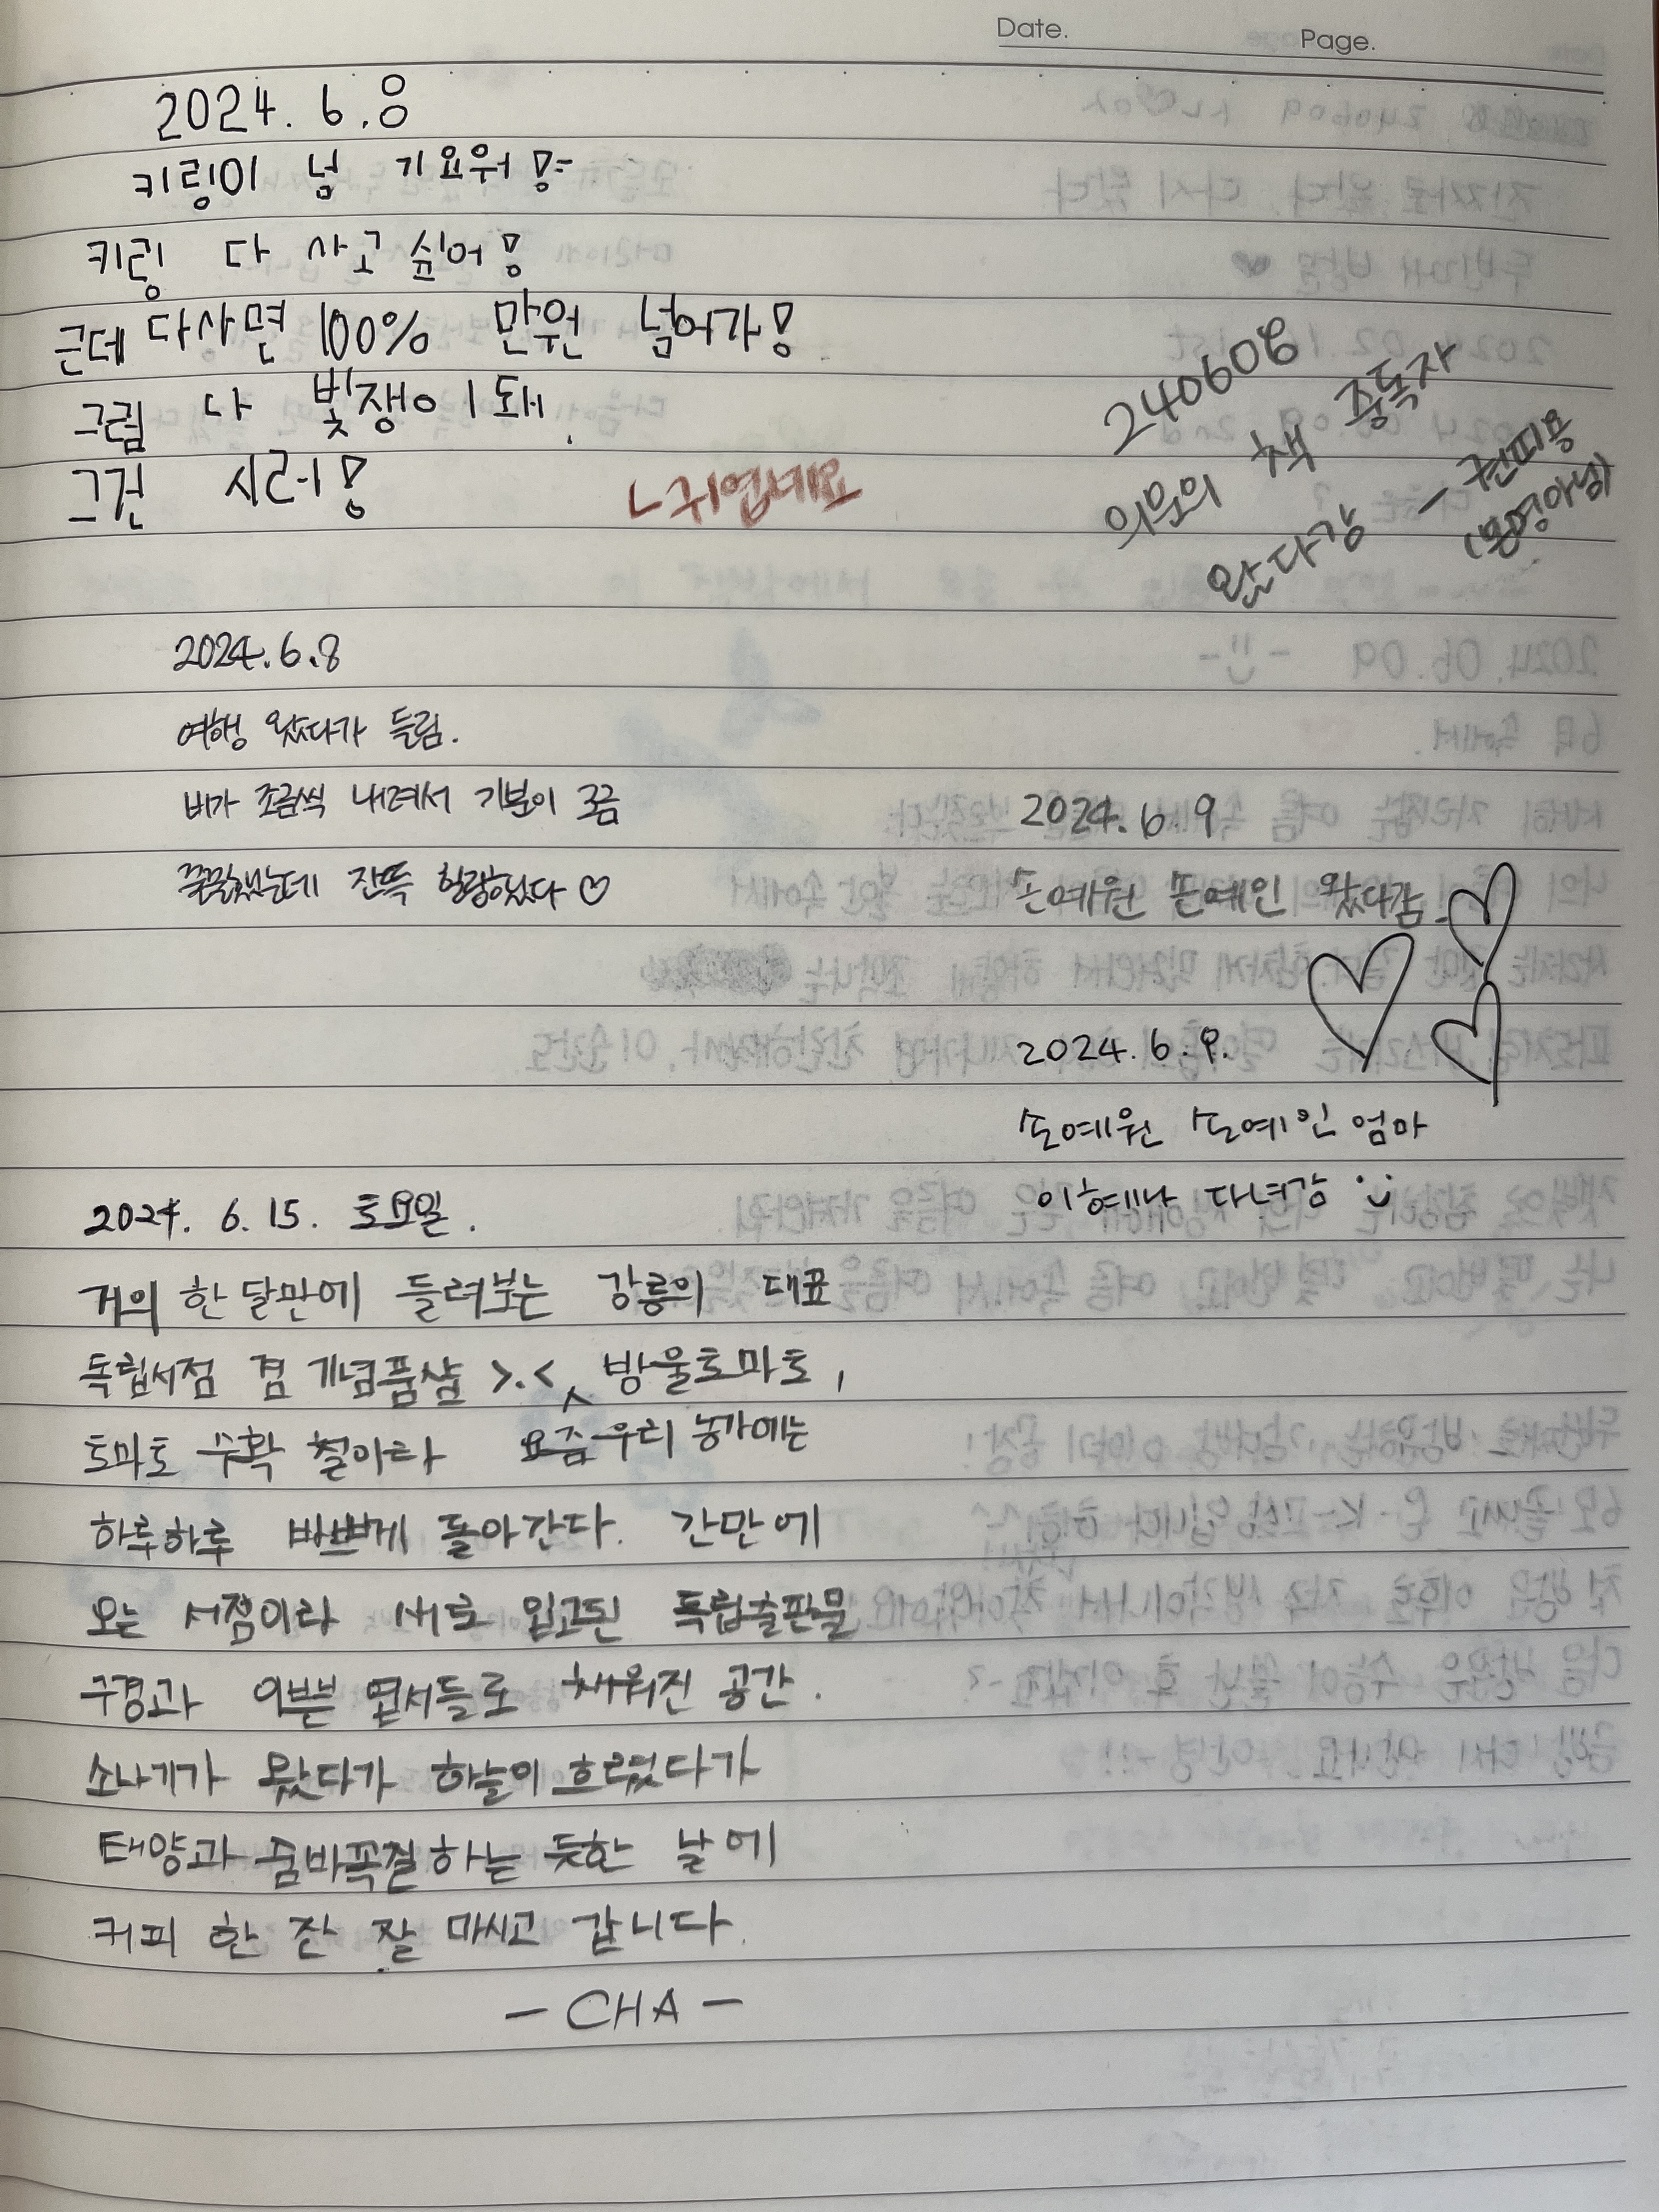 Date.
Page.
2024. 6. 8
키링이 넘 기요워!
키링 다 사고 싶어!
근데 다사면 100% 만원 넘어가!
그럼 나 빚쟁이 돼.
그건 시러!
240608
의문의 책 중독자
왔다감 - 권피용
(본명아님)
2024.6.8
여행 왔다가 들림.
비가 조금씩 내려서 기분이 꼬금
꿀꿀했는데 잔뜩 힐링했다 ♡
2024.6.9
손예원 손예인 왔다감
2024.6.9.
손예원 손예인 엄마
이혜나 다녀감
2024. 6. 15. 토요일.
거의 한 달만에 들려보는 강릉의 대표
독립서점 겸 기념품샵 >.< 방울토마토,
토마토 수확 철이라 요즘 우리 농가에는
하루하루 바쁘게 돌아간다. 간만에
오는 서점이라 새로 입고된 독립출판물
구경과 이쁜 엽서들로 채워진 공간.
소나기가 왔다가 하늘이 흐렸다가
태양과 숨바꼭질하는 듯한 날에
커피 한 잔 잘 마시고 갑니다.
- CHA -